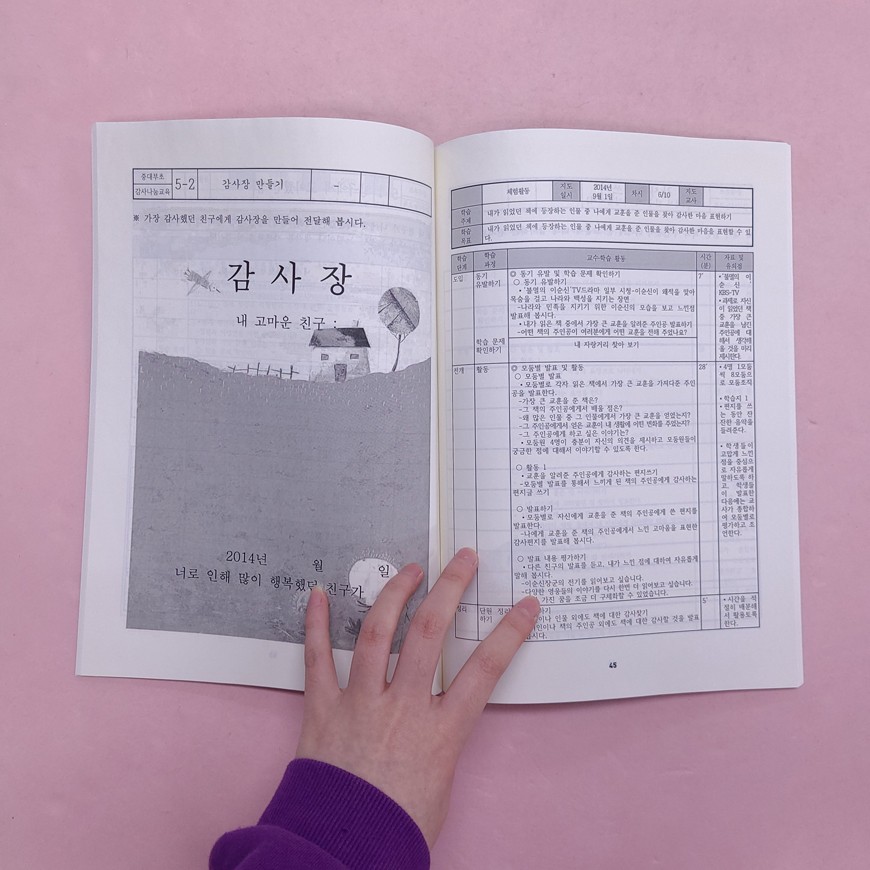 중대부초
감사나눔교육
5-2
감사장 만들기
-
※ 가장 감사했던 친구에게 감사장을 만들어 전달해 봅시다.
감 사 장
내 고마운 친구 :
2014년 월 일
너로 인해 많이 행복했던 친구가
체험활동
지도
일시
2014년
9월 1일
차시
6/10
지도
교사
학습
주제
내가 읽었던 책에 등장하는 인물 중 나에게 교훈을 준 인물을 찾아 감사한 마음 표현하기
학습
목표
내가 읽었던 책에 등장하는 인물 중 나에게 교훈을 준 인물을 찾아 감사한 마음을 표현할 수 있
다.
학습
단계
학습
과정
교수학습 활동
시간
(분)
자료 및
유의점
도입
동기
유발하기
◎ 동기 유발 및 학습 문제 확인하기
○ 동기 유발하기
• '불멸의 이순신'TV드라마 일부 시청-이순신이 왜적을 맞아
목숨을 걸고 나라와 백성을 지키는 장면
-나라와 민족을 지키기 위한 이순신의 모습을 보고 느낀점
발표해 봅시다.
• 내가 읽은 책 중에서 가장 큰 교훈을 알려준 주인공 발표하기
-어떤 책의 주인공이 여러분에게 어떤 교훈을 전해 주었나요?
7'
• '불멸의 이
순신'
KBS-TV
• 과제로 자신
이 읽었던 책
중 가장 큰
교훈을 남긴
주인공에 대
해서 생각해
올 것을 미리
제시한다.
학습 문제
확인하기
내 자랑거리 찾아 보기
전개
활동
◎ 모둠별 발표 및 활동
○ 모둠별 발표
• 모둠별로 각자 읽은 책에서 가장 큰 교훈을 가져다준 주인
공을 발표한다.
-가장 큰 교훈을 준 책은?
-그 책의 주인공에게서 배울 점은?
-왜 많은 인물 중 그 인물에게서 가장 큰 교훈을 얻었는지?
-그 주인공에게서 얻은 교훈이 내 생활에 어떤 변화를 주었는지?
-그 주인공에게 하고 싶은 이야기는?
• 모둠원 4명이 충분이 자신의 의견을 제시하고 모둠원들이
궁금한 점에 대해서 이야기할 수 있도록 한다.
○ 활동 1
• 교훈을 알려준 주인공에게 감사하는 편지쓰기
-모둠별 발표를 통해서 느끼게 된 책의 주인공에게 감사하는
편지글 쓰기
○ 발표하기
• 모둠별로 자신에게 교훈을 준 책의 주인공에게 쓴 편지를
발표한다.
-나에게 교훈을 준 책의 주인공에게서 느낀 고마움을 표현한
감사편지를 발표해 봅시다.
○ 발표 내용 평가하기
• 다른 친구의 발표를 듣고, 내가 느낀 점에 대하여 자유롭게
말해 봅시다.
-이순신장군의 전기를 읽어보고 싶습니다.
-다양한 영웅들의 이야기를 다시 한번 더 읽어보고 싶습니다.
가진 꿈을 조금 더 구체화할 수 있었습니다.
28'
• 4명 1모둠
씩 8모둠으
로 모둠조직
• 학습지 1
• 편지를 쓰
는 동안 잔
잔한 음악을
들려준다.
• 학생들이
고맙게 느낀
점을 중심으
로 자유롭게
말하도록 하
고, 학생들
이 발표한
다음에는 교
사가 종합하
여 모둠별로
평가하고 조
언한다.
정리
단원 정리
하기
하기
이나 인물 외에도 책에 대한 감사찾기
인이나 책의 주인공 외에도 책에 대한 감사할 것을 발표
합시다.
5'
• 시간을 적
절히 배분해
서 활동토록
한다.
45